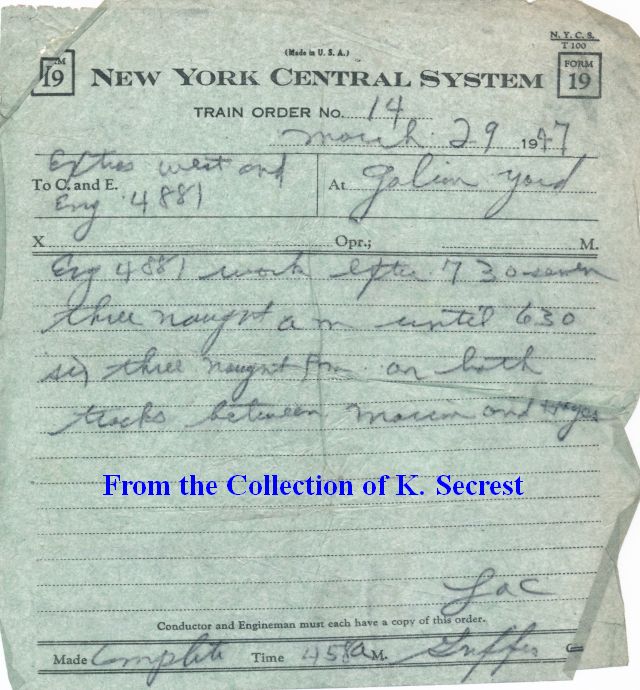 N. Y. C. S.
T 100
(Made in U. S. A.)
FORM 19
NEW YORK CENTRAL SYSTEM
FORM 19
TRAIN ORDER No. 14
March 29 1947
Extras west and
To C. and E. Eng 4881
At Galion yard
X Opr.; M.
Eng 4881 work Extra 730 seven
three nought a m until 630
six three nought Pm on both
tracks between Marion and
From the Collection of K. Secrest
Conductor and Engineman must each have a copy of this order.
Made Complete Time 458a M.